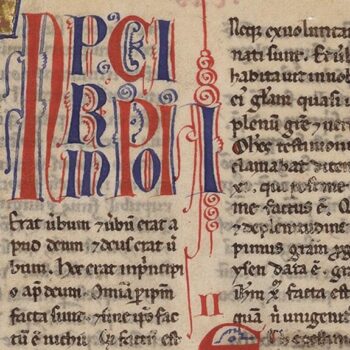 IN
P CI
R PI
IN O
Erat ūbum & ūbū erat a
pud deum & deus erat ū
bum. Hoc erat inp̄ncipi
o ap̄ deum. Omīa p ip̄m
facta sunt. & sine ip̄o fac
tū ē nichil. Qd̄ factū est
I
II
Neq; ex uoluntat
nati sunt. Et ū
habitauit in nob
ei' glām quasi u
plenū grē & ueri
Ohēs testimoni
clamabat dicen
x̄. qui post me
me factus ē. Q
& de plenitudine
pimus grām p g
ysen data ē. g
ihm x̄ facta est
quā n̄ unigenit